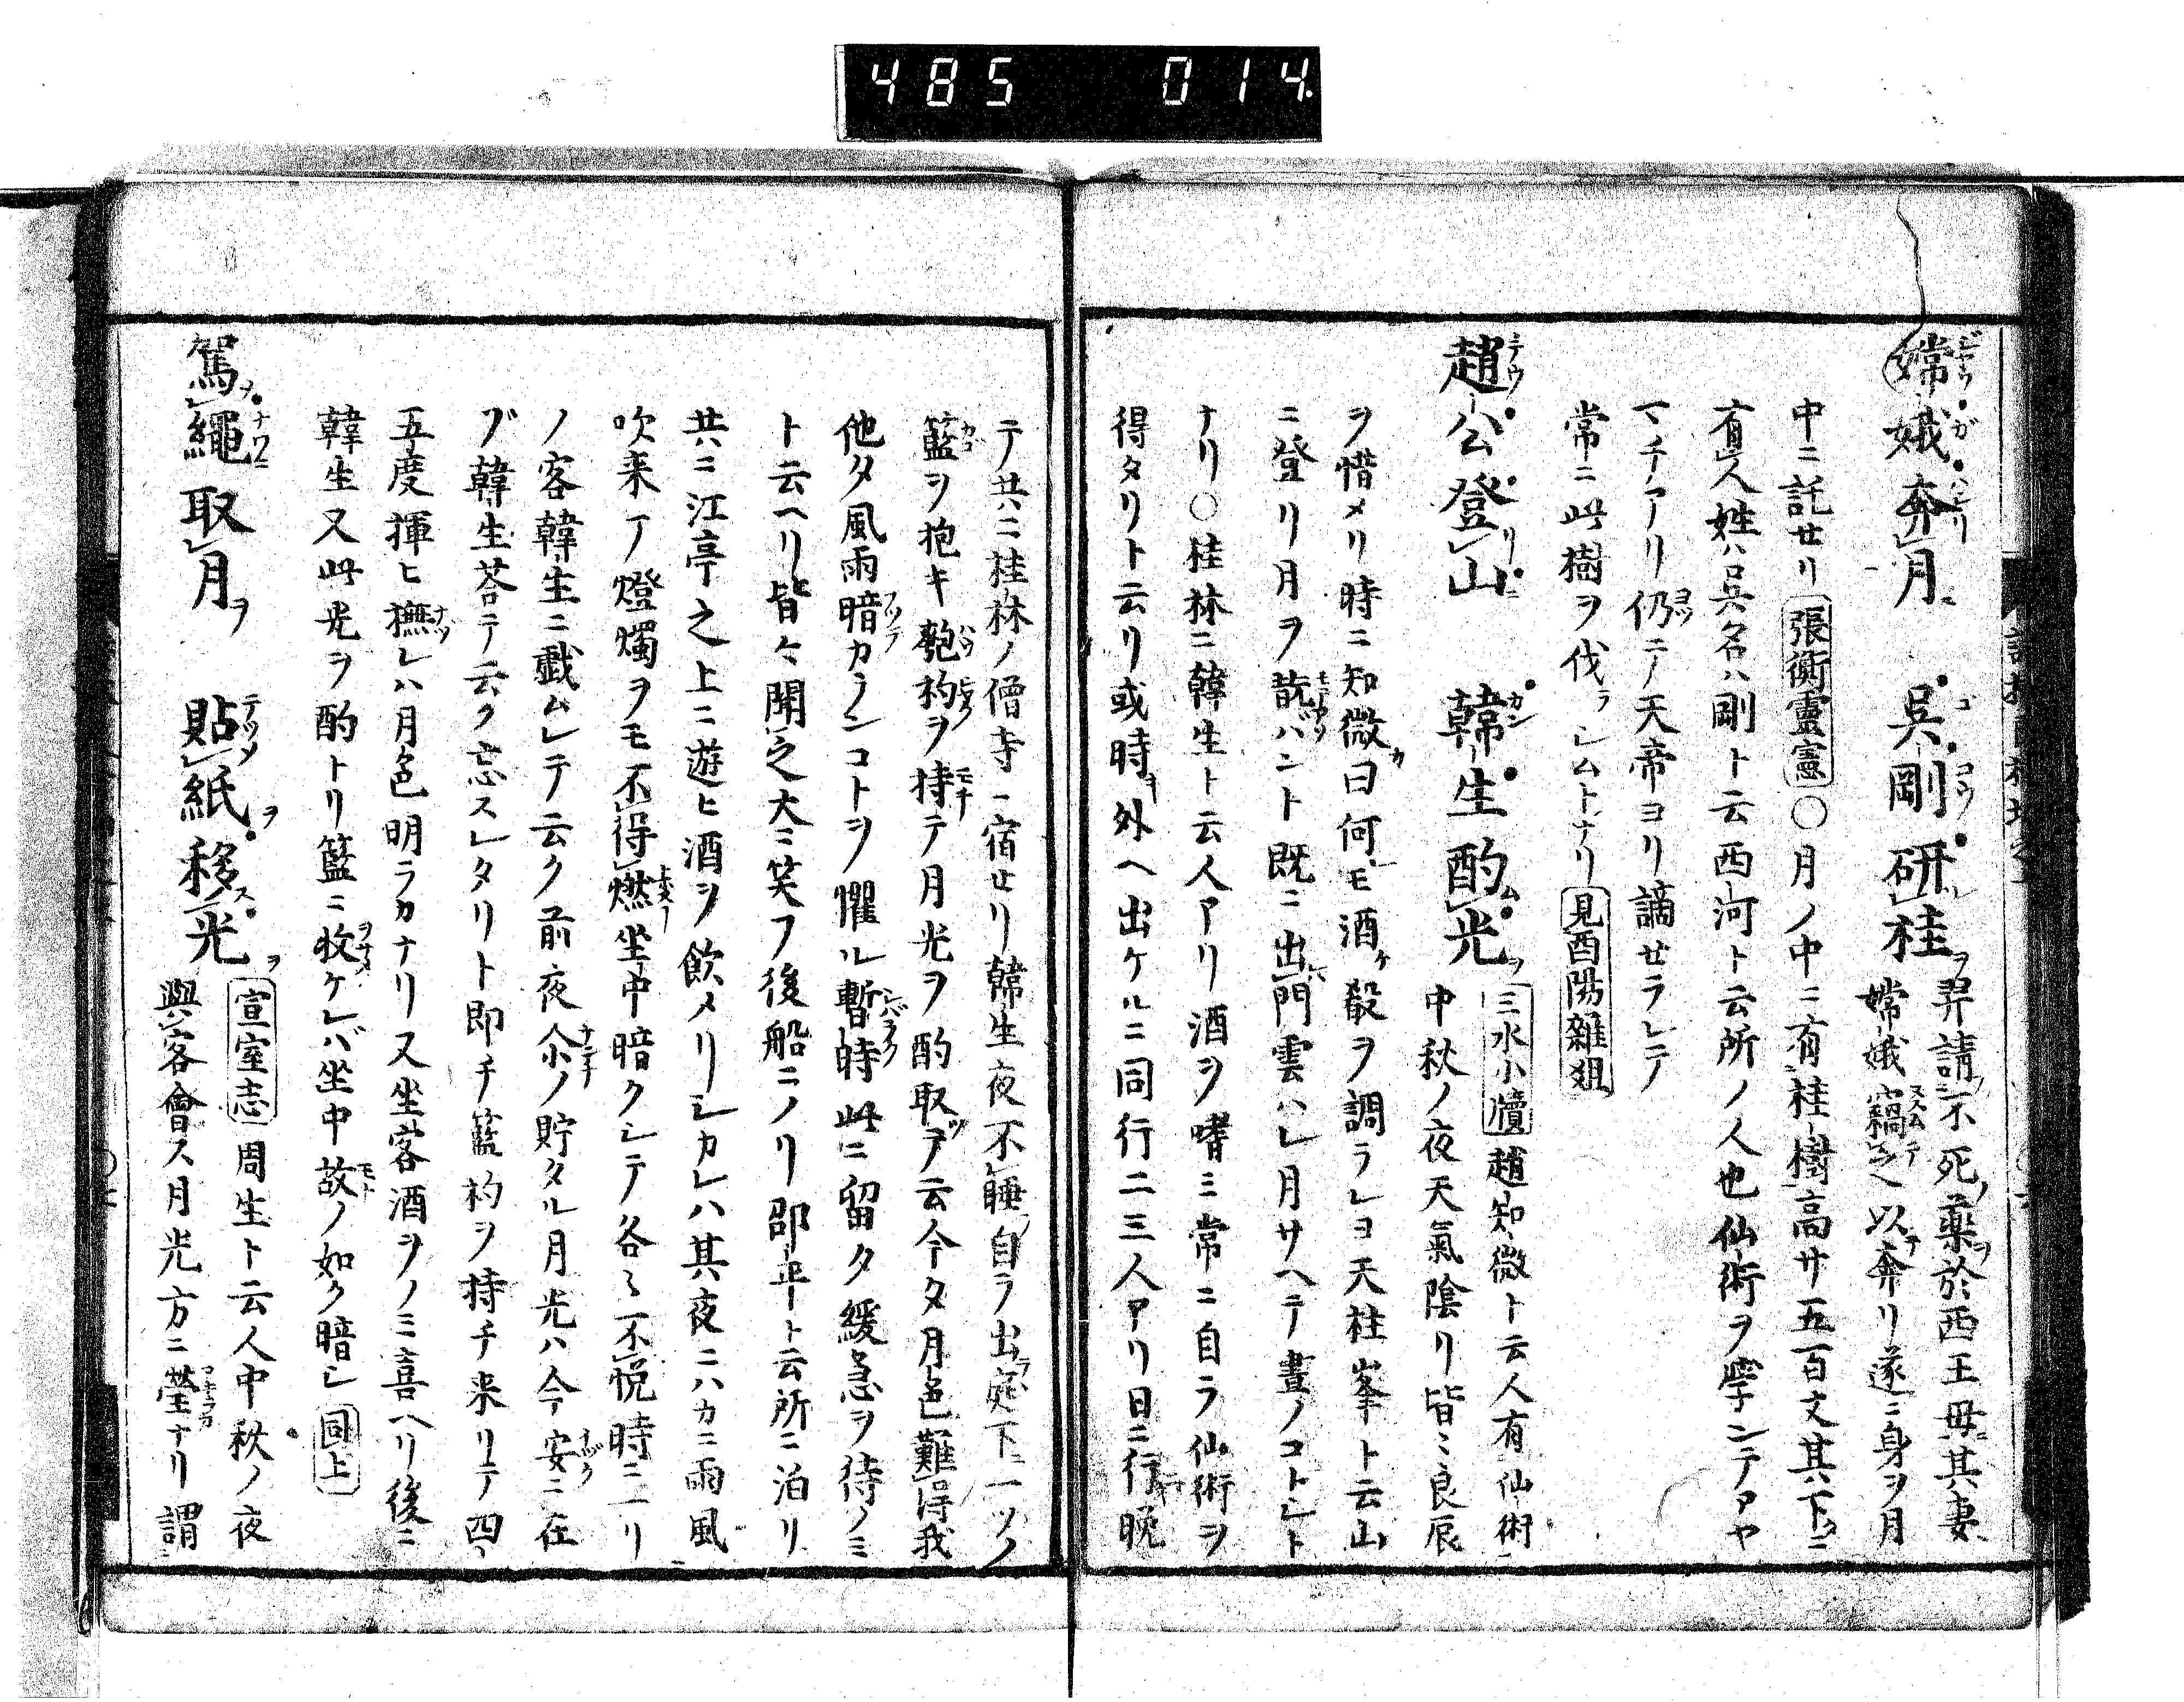 485 014
嫦娥奔月 呉剛研桂 羿請不死藥於西王母其妻
嫦娥竊之以奔リ遂ニ身ヲ月
中ニ託セリ 張衡靈憲 〇月ノ中ニ有桂樹高サ五百丈其下ニ
有人姓ハ呉名ハ剛ト云西河ト云所ノ人也仙術ヲ學ンテアヤ
マチアリ仍テ天帝ヨリ謫セラレテ
常ニ此樹ヲ伐ラシムトナリ 見酉陽雑俎
趙公登山 韓生酌光 三水小牘 趙知微ト云人有仙術
中秋ノ夜天氣陰リ皆ニ良辰
ヲ惜メリ時ニ知微曰何モ酒殽ヲ調ラレヨ天柱峯ト云山
ニ登リ月ヲ翫バント既ニ出門雲ハレ月サヘテ晝ノコトシト
ナリ〇桂林ニ韓生ト云人アリ酒ヲ嗜ミ常ニ自ラ仙術ヲ
得タリト云リ或時外ヘ出ケルニ同行二三人アリ日ニ行晩
テ共ニ桂林ノ僧寺ニ宿セリ韓生夜不睡自ラ出庭下一ツノ
籃ヲ抱キ匏杓ヲ持テ月光ヲ酌取テ云今夕月色難得我
他夕風雨暗カランコトヲ懼ル暫時此ニ留タ緩急ヲ待ノミ
ト云ヘリ皆々聞之大ニ笑フ後船ニノリ邵平ト云所ニ泊リ
共ニ江亭之上ニ遊ヒ酒ヲ飲メリシカレハ其夜ニハカニ雨風
吹来テ燈燭ヲモ不得燃坐中暗クシテ各々不悦時ニ一リ
ノ客韓生ニ戯ムレテ云ク前夜尓ノ貯タル月光ハ今安ニ在
ブ韓生荅テ云ク忘スレタリト即チ籃杓ヲ持チ来リテ四
五度揮ヒ撫レハ月色明ラカナリ又坐客酒ヲノミ喜ヘリ後ニ
韓生又此光ヲ酌トリ籃ニ收ケレバ坐中故ノ如ク暗シ 同上
駕繩取月 貼紙移光 宣室志 周生ト云人中秋ノ夜
與客會ス月光方ニ瑩ナリ謂